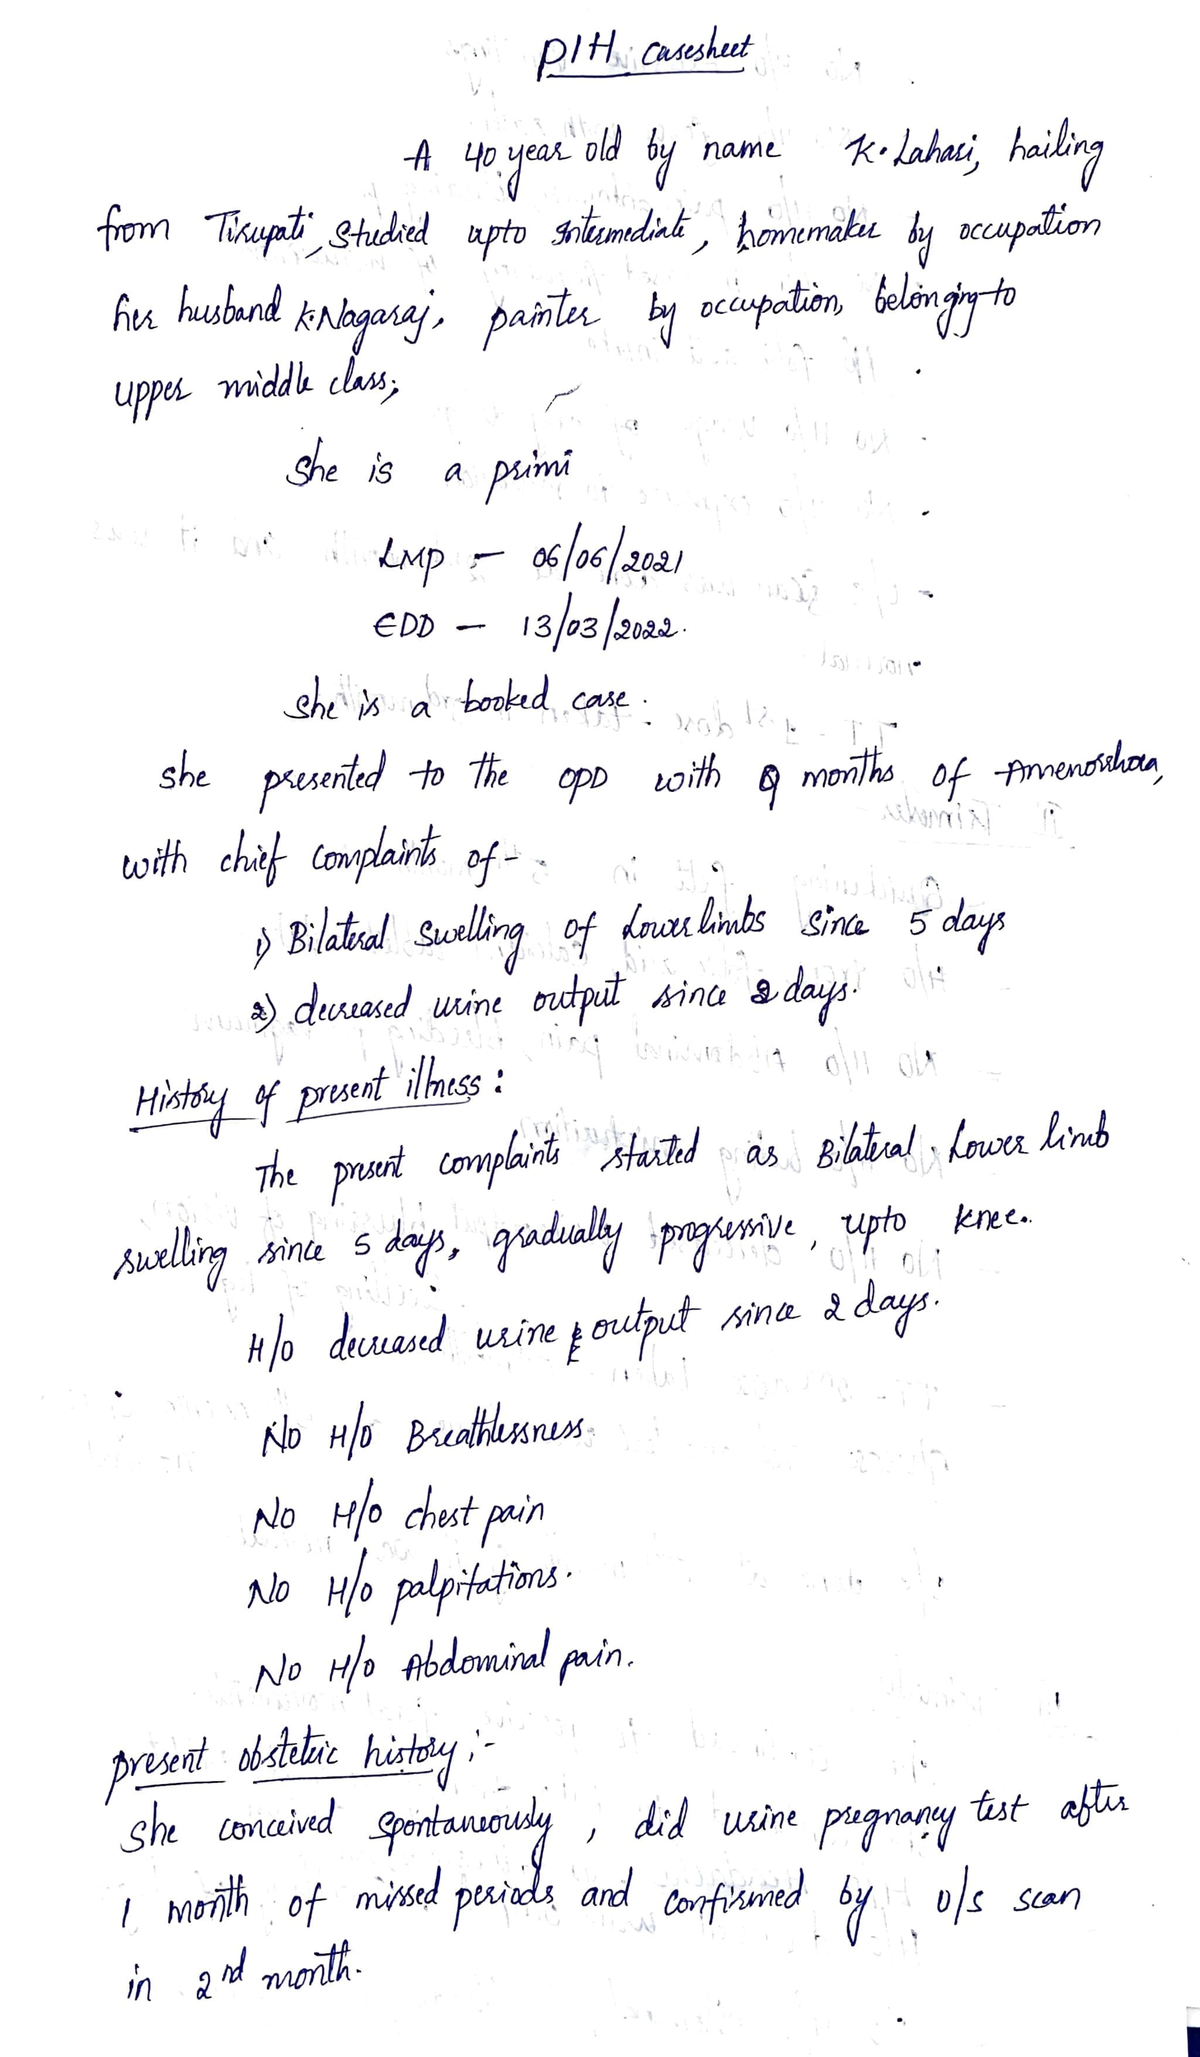 PIH casesheet
A 40 year old by name K. Lahari, hailing
from Tirupati, studied upto Intermediate, homemaker by occupation
her husband K.Nagaraj, painter by occupation, belonging to
upper middle class;
She is a primi
LMP - 06/06/2021
EDD - 13/03/2022.
She is a booked case.
She presented to the OPD with 9 months of Amenorrhoea,
with chief complaints of -
1) Bilateral swelling of Lower limbs since 5 days
2) decreased urine output since 2 days.
History of present illness :
The present complaints started as Bilateral Lower limb
swelling since 5 days, gradually progressive, upto knee.
H/o decreased urine output since 2 days.
No H/o Breathlessness
No H/o chest pain
No H/o palpitations.
No H/o Abdominal pain.
present obstetric history :-
She conceived spontaneously, did urine pregnancy test after
1 month of missed periods and confirmed by U/S scan
in 2nd month.